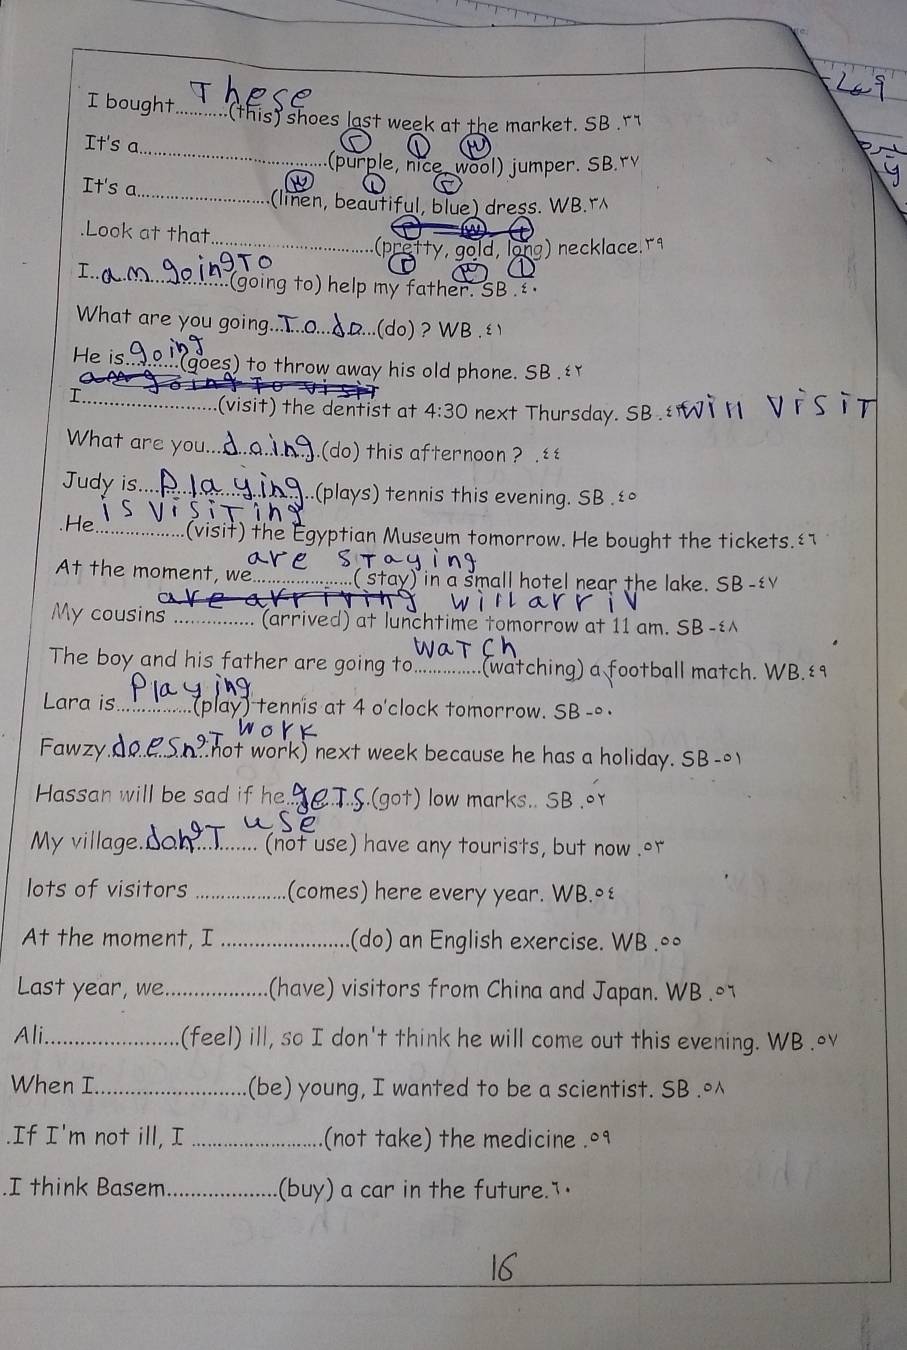 I bought These ...........(this) shoes last week at the market. SB .٣٦
It's a...............................(purple, nice, wool) jumper. SB.٣٧
It's a......................(linen, beautiful, blue) dress. WB.٣٨
.Look at that...........................(pretty, gold, long) necklace.٣٩
I..am going To(going to) help my father. SB .٤٠
What are you going...To do...(do) ? WB .٤١
He is going(goes) to throw away his old phone. SB .٤٢
am going to visit
I.......................(visit) the dentist at 4:30 next Thursday. SB .٤٣ will visiT
What are you...doing.(do) this afternoon ? .٤٤
Judy is....playing..(plays) tennis this evening. SB .٤٥
.He is visiTing................(visit) the Egyptian Museum tomorrow. He bought the tickets.٤٦
At the moment, we are sTaying..................( stay) in a small hotel near the lake. SB -٤٧
are arriving will arriv
My cousins .............. (arrived) at lunchtime tomorrow at 11 am. SB -٤٨
The boy and his father are going to waTch............(watching) a football match. WB.٤٩
Lara is Playing.............(play) tennis at 4 o'clock tomorrow. SB -٥٠
Fawzy.doesn'T work(not work) next week because he has a holiday. SB -٥١
Hassan will be sad if he..geTs.(got) low marks.. SB .٥٢
My village.don'T use....... (not use) have any tourists, but now .٥٣
lots of visitors ................(comes) here every year. WB.٥٤
At the moment, I ......................(do) an English exercise. WB .٥٥
Last year, we..................(have) visitors from China and Japan. WB .٥٦
Ali.......................(feel) ill, so I don't think he will come out this evening. WB .٥٧
When I..........................(be) young, I wanted to be a scientist. SB .٥٨
.If I'm not ill, I ......................(not take) the medicine .٥٩
.I think Basem...................(buy) a car in the future.٦٠
16